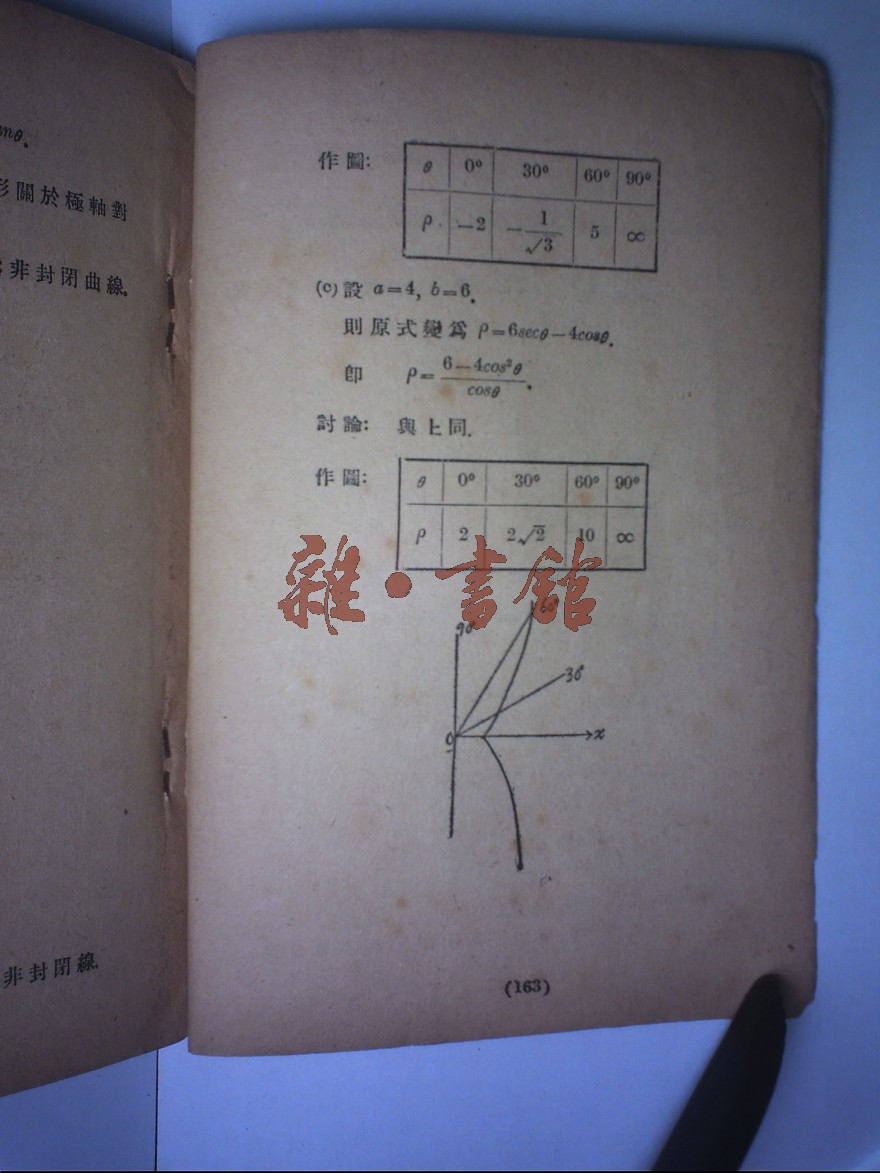 nθ.
形關於極軸對
非封閉曲線.
非封閉線.
作圖:
θ 0° 30° 60° 90°
ρ -2 -1/√3 5 ∞
(c) 設 a=4, b=6.
則原式變爲 ρ=6secθ-4cosθ.
卽 ρ=(6-4cos²θ)/cosθ.
討論: 與上同.
作圖:
θ 0° 30° 60° 90°
ρ 2 2√2 10 ∞
雜·書館
60°
90°
30°
O x
(163)